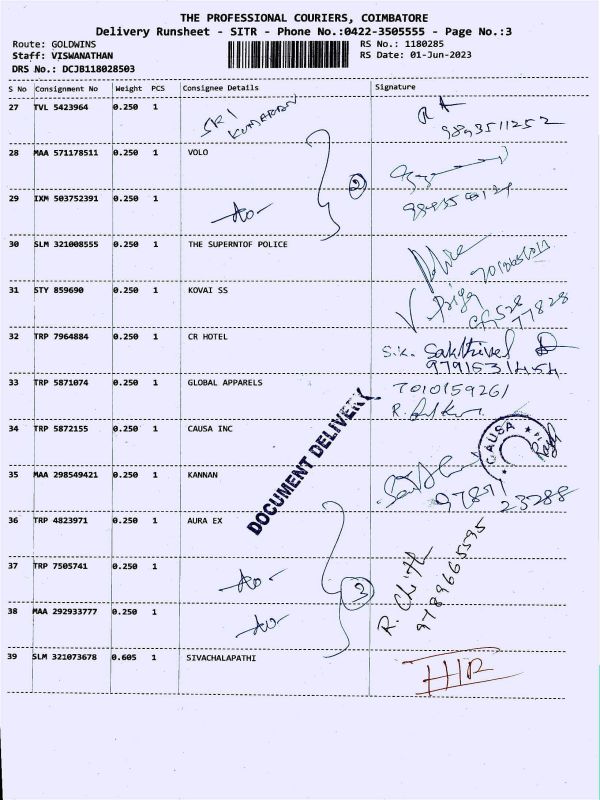 THE PROFESSIONAL COURIERS, COIMBATORE
Delivery Runsheet - SITR - Phone No.:0422-3505555 - Page No.:3
Route: GOLDWINS
Staff: VISWANATHAN
DRS No.: DCJB118028503
RS No.: 1180285
RS Date: 01-Jun-2023
S No Consignment No Weight PCS Consignee Details Signature
27 TVL 5423964 0.250 1 SRI KUMARAN
9893511252
28 MAA 571178511 0.250 1 VOLO
2
29 IXM 503752391 0.250 1
30 SLM 321008555 0.250 1 THE SUPERNTOF POLICE
31 STY 859690 0.250 1 KOVAI SS
V Priya
77828
32 TRP 7964884 0.250 1 CR HOTEL
S.K. Sakthivel
9791531454
33 TRP 5871074 0.250 1 GLOBAL APPARELS
7010159261
34 TRP 5872155 0.250 1 CAUSA INC
CAUSA
DOCUMENT DELIVERY
35 MAA 298549421 0.250 1 KANNAN
97891
23288
36 TRP 4823971 0.250 1 AURA EX
37 TRP 7505741 0.250 1
3
R. Chith
9789665595
38 MAA 292933777 0.250 1
39 SLM 321073678 0.605 1 SIVACHALAPATHI